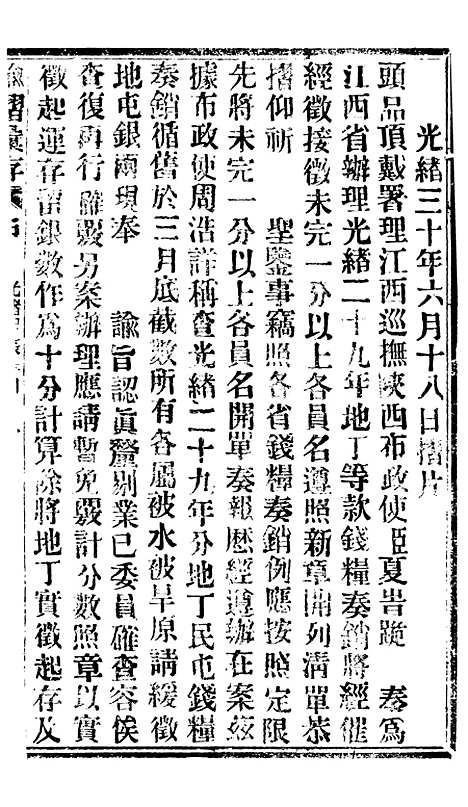 光緒三十年六月十八日摺片
頭品頂戴署理江西巡撫陝西布政使臣夏旹跪　奏爲
江西省辦理光緒二十九年地丁等款錢糧奏銷將經催
經徵接徵未完一分以上各員名遵照新章開列清單恭
摺仰祈　聖鑒事竊照各省錢糧奏銷例應按照定限
先將未完一分以上各員名開單奏報歷經遵辦在案茲
據布政使周浩詳稱查光緒二十九年分地丁民屯錢糧
奏銷循舊於三月底截數所有各屬被水被旱原請緩徵
地屯銀兩現奉　諭旨認眞釐剔業已委員確查容俟
查復再行　覈另案辦理應請暫免覈計分數照章以實
徵起運存留銀數作爲十分計算除將地丁實徵起存及
諭摺彙存